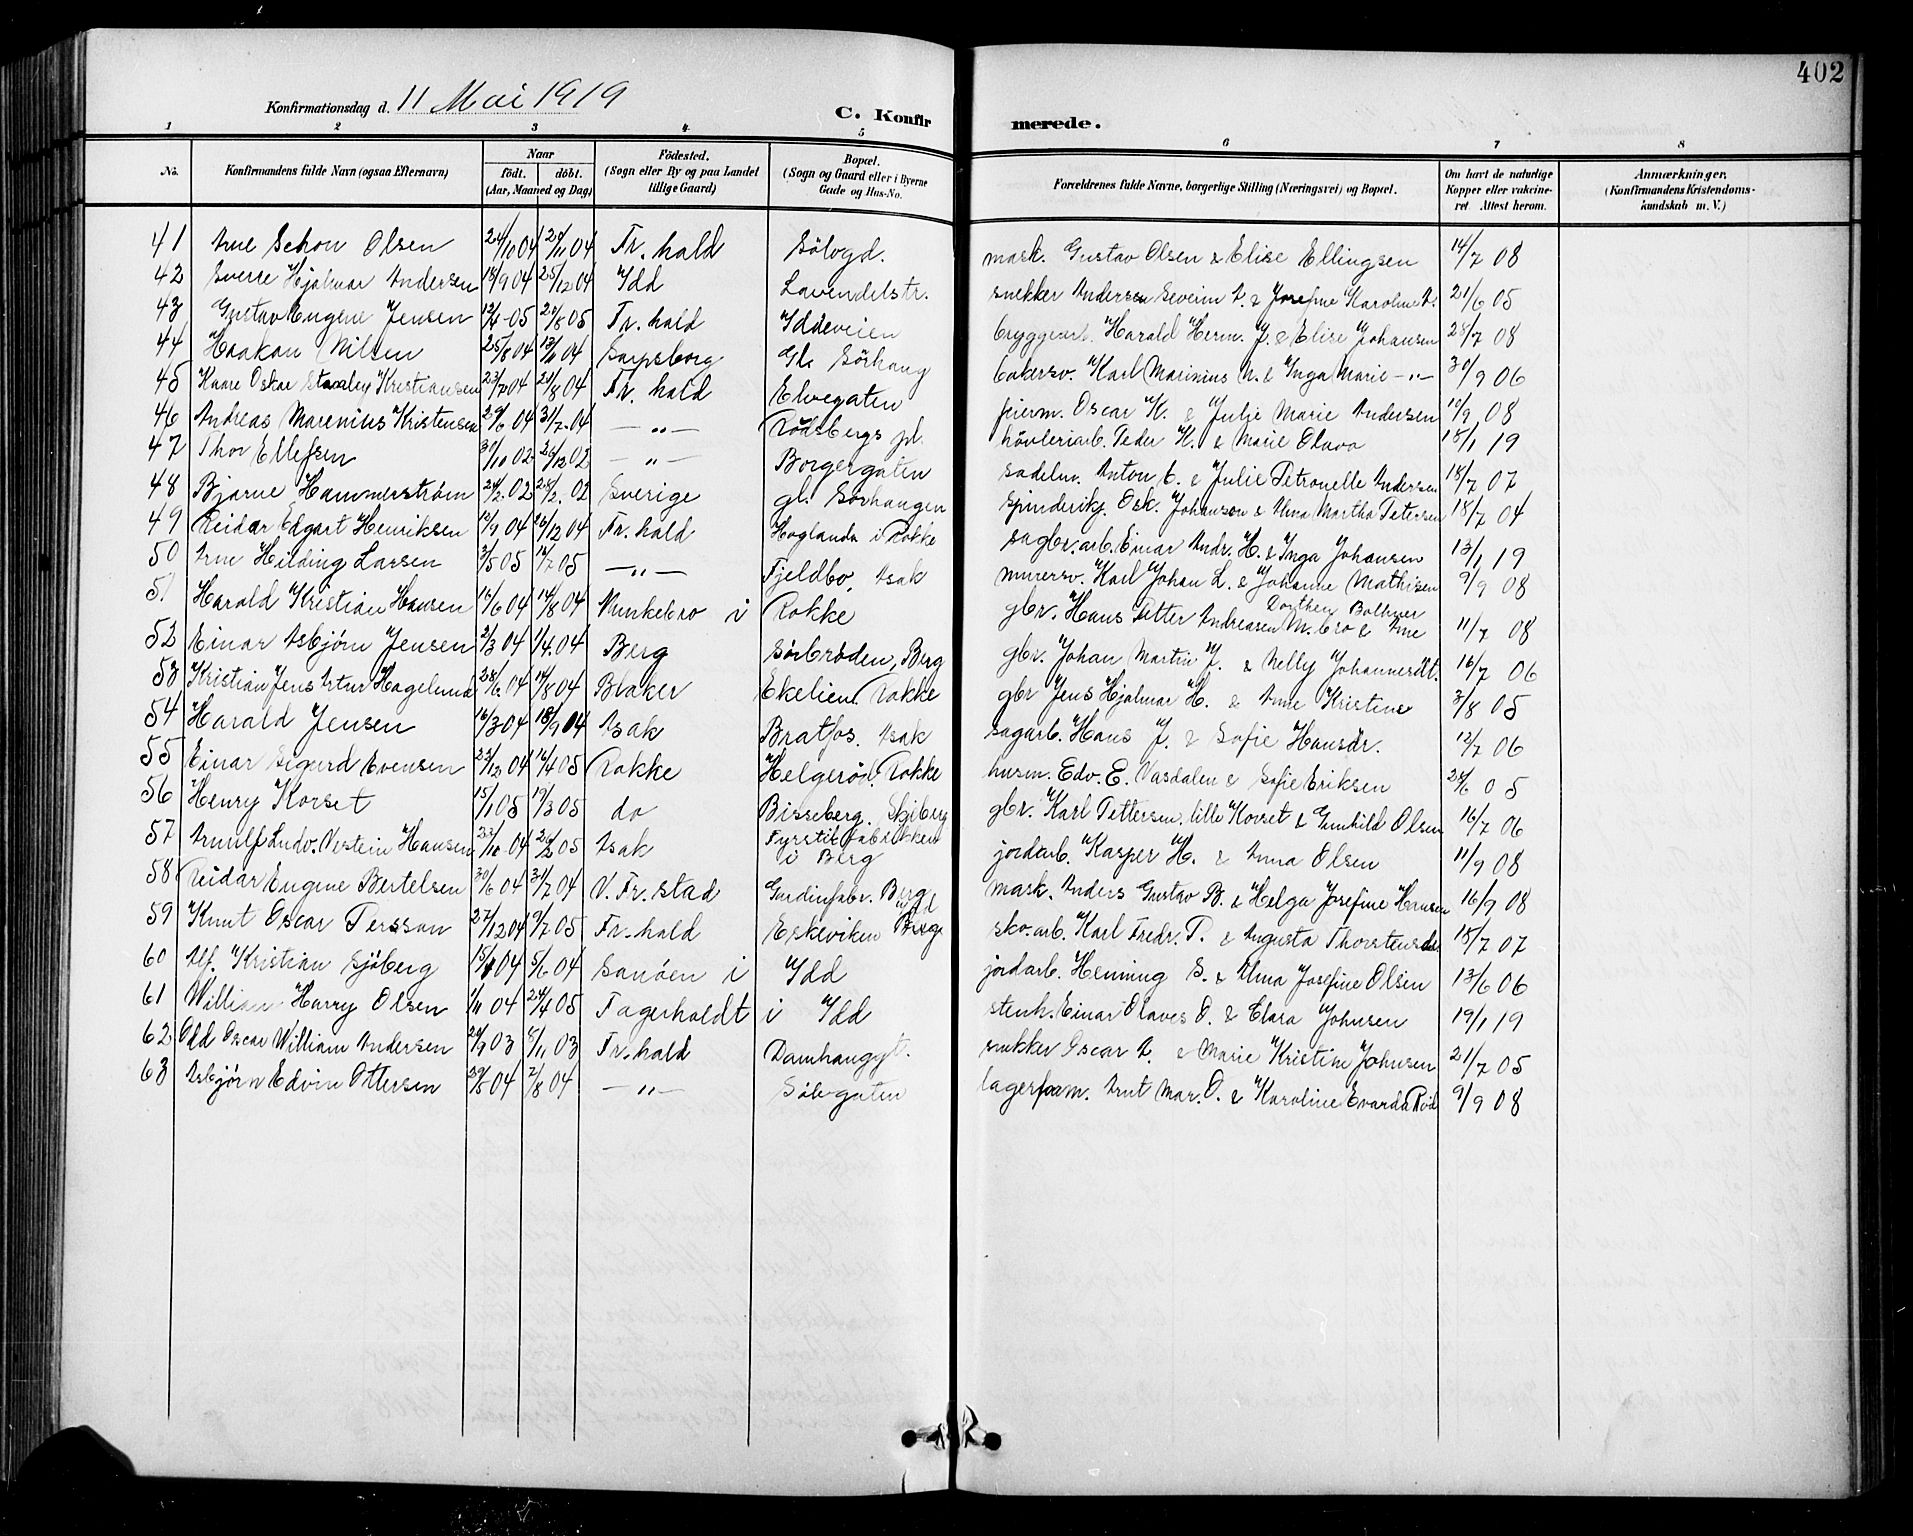 402
Konfirmationsdag d. 11 Mai 1919
C. Konfirmerede.
1 2 3 4 5 6 7 8
No.
Konfirmandens fulde Navn (ogsaa Efternavn)
Naar
født. døbt.
(Aar, Maaned og Dag)
Födested.
(Sogn eller By og paa Landet tillige Gaard)
Bopæl.
(Sogn og Gaard eller i Byerne Gade og Hus-No.
Forældrenes fulde Navne, borgerlige Stilling (Næringsvei) og Bopæl.
Om havt de naturlige Kopper eller vakcineret. Attest herom.
Anmærkninger.
(Konfirmandens Kristendomskundskab m. V.)
41 Arne Schou Olsen 24/10 04 27/11 04 Fr. hald Sölvgd. mask. Gustav Olsen & Elise Ellingsen 14/7 08
42 Sverre Hjalmar Andersen 18/9 04 25/12 04 Idd Lavendelstr. snekker Andersen Severin A. & Josefine Karoline A. 21/6 05
43 Gustav Eugene Jensen 12/4 05 20/8 05 Fr. hald Iddeveien bryggearb. Harald Herm. J. & Elise Johansen 28/7 08
44 Haakon Nilsen 25/8 04 13/11 04 Sarpsborg Gl. Sörhaug bakersv. Karl Marinius N. & Inga Marie —"— 30/9 06
45 Kaare Oskar Stanley Kristiansen 23/7 04 21/8 04 Fr. hald Elvegaten feierm. Oscar K. & Julie Marie Andersen 10/9 08
46 Andreas Marenius Kristensen 29/6 04 31/7 04 —"— Rödsbergs pl. hövleriarb. Peder K. & Marie Olava 18/1 19
47 Thor Ellefsen 30/10 02 26/12 02 —"— Borgergaten sadelm. Anton E. & Julie Petronelle Andersen 18/7 07
48 Bjarne Hammerström 24/2 02 28/2 02 Sverige gl. Sörhaugen spinderikj. Osk. Johanson & Alma Martha Petersen 18/7 04
49 Reidar Edgart Henriksen 12/9 04 26/12 04 Fr. hald Hoglanda i Rokke sagbr. arb. Einar Andr. H. & Inga Johansen 13/1 19
50 Arne Hilding Larsen 3/5 05 14/7 05 —"— Fjeldbo, Asak murersv. Karl Johan L. & Johanne Mathisen 9/9 08
51 Harald Kristian Hansen 16/6 04 14/8 04 Munkebro i Rokke gbr. Hans Petter Andreasen M.bro & Ane Dorthea 11/7 08
52 Einar Asbjörn Jensen 2/3 04 1/4 04 Berg Sörbröden, Berg gbr. Johan Martin J. & Nelly Johannesdt. 16/7 06
53 Kristian Jens Artur Hagelund 28/6 04 14/8 04 Blaker Ekelien Rokke gbr Jens Hjalmar H. & Ane Kristine 3/8 05
54 Harald Jensen 16/3 04 18/9 04 Asak Bratfos. Asak sagarb. Hans J. & Sofie Hansdr. 12/7 06
55 Einar Sigurd Evensen 23/12 04 16/4 05 Rokke Helgeröd. Rokke husm. Edv. E. Vasdalen & Sofie Eriksen 24/6 05
56 Henry Korset 15/1 05 19/3 05 do Bisseberg. Skjeberg gbr. Karl Pettersen, lille Korset & Gunhild Olsen 16/7 06
57 Arnulf Ludv. Verstein Hansen 22/10 04 26/2 05 Asak Fyrstikfabrikken i Berg jordarb. Kasper H. & Anna Olsen 11/9 08
58 Reidar Eugene Bertelsen 30/6 04 31/7 04 V. Fr. stad Gardinfabr. Berg mask. Anders Gustav B. & Helga Josefine Hansen 16/9 08
59 Knut Oscar Persson 27/12 04 9/7 05 Fr. hald Eskeviken Berg sko. arb. Karl Fredr. P. & Augusta Thorstensdr 18/7 07
60 Alf. Kristian Sjöberg 15/1 04 5/6 04 Sanöen i Idd jordarb. Henning S. & Alma Josefine Olsen 13/6 06
61 William Harry Olsen 1/11 04 24/4 05 Fagerholdt i Idd stenh. Einar Olaves O. & Clara Johnsen 19/1 19
62 Odd Oscar William Andersen 20/9 03 8/11 03 Fr. hald Damhauggt. snekker Oscar A. & Marie Kristine Johnsen 21/7 05
63 Asbjörn Edvin Ottersen 29/5 04 2/8 04 —"— Sölvgaten lagerform. Arnt Mar. O. & Karoline Evarda Röd 9/9 08